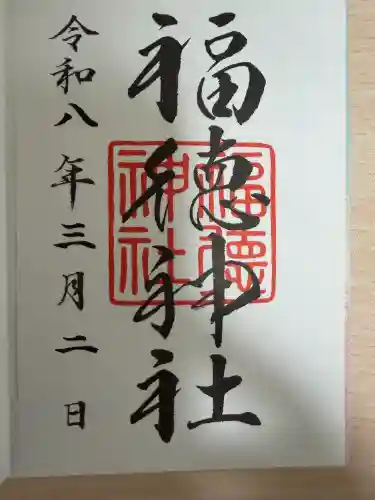 福徳神社
福徳神社
令和八年三月二日